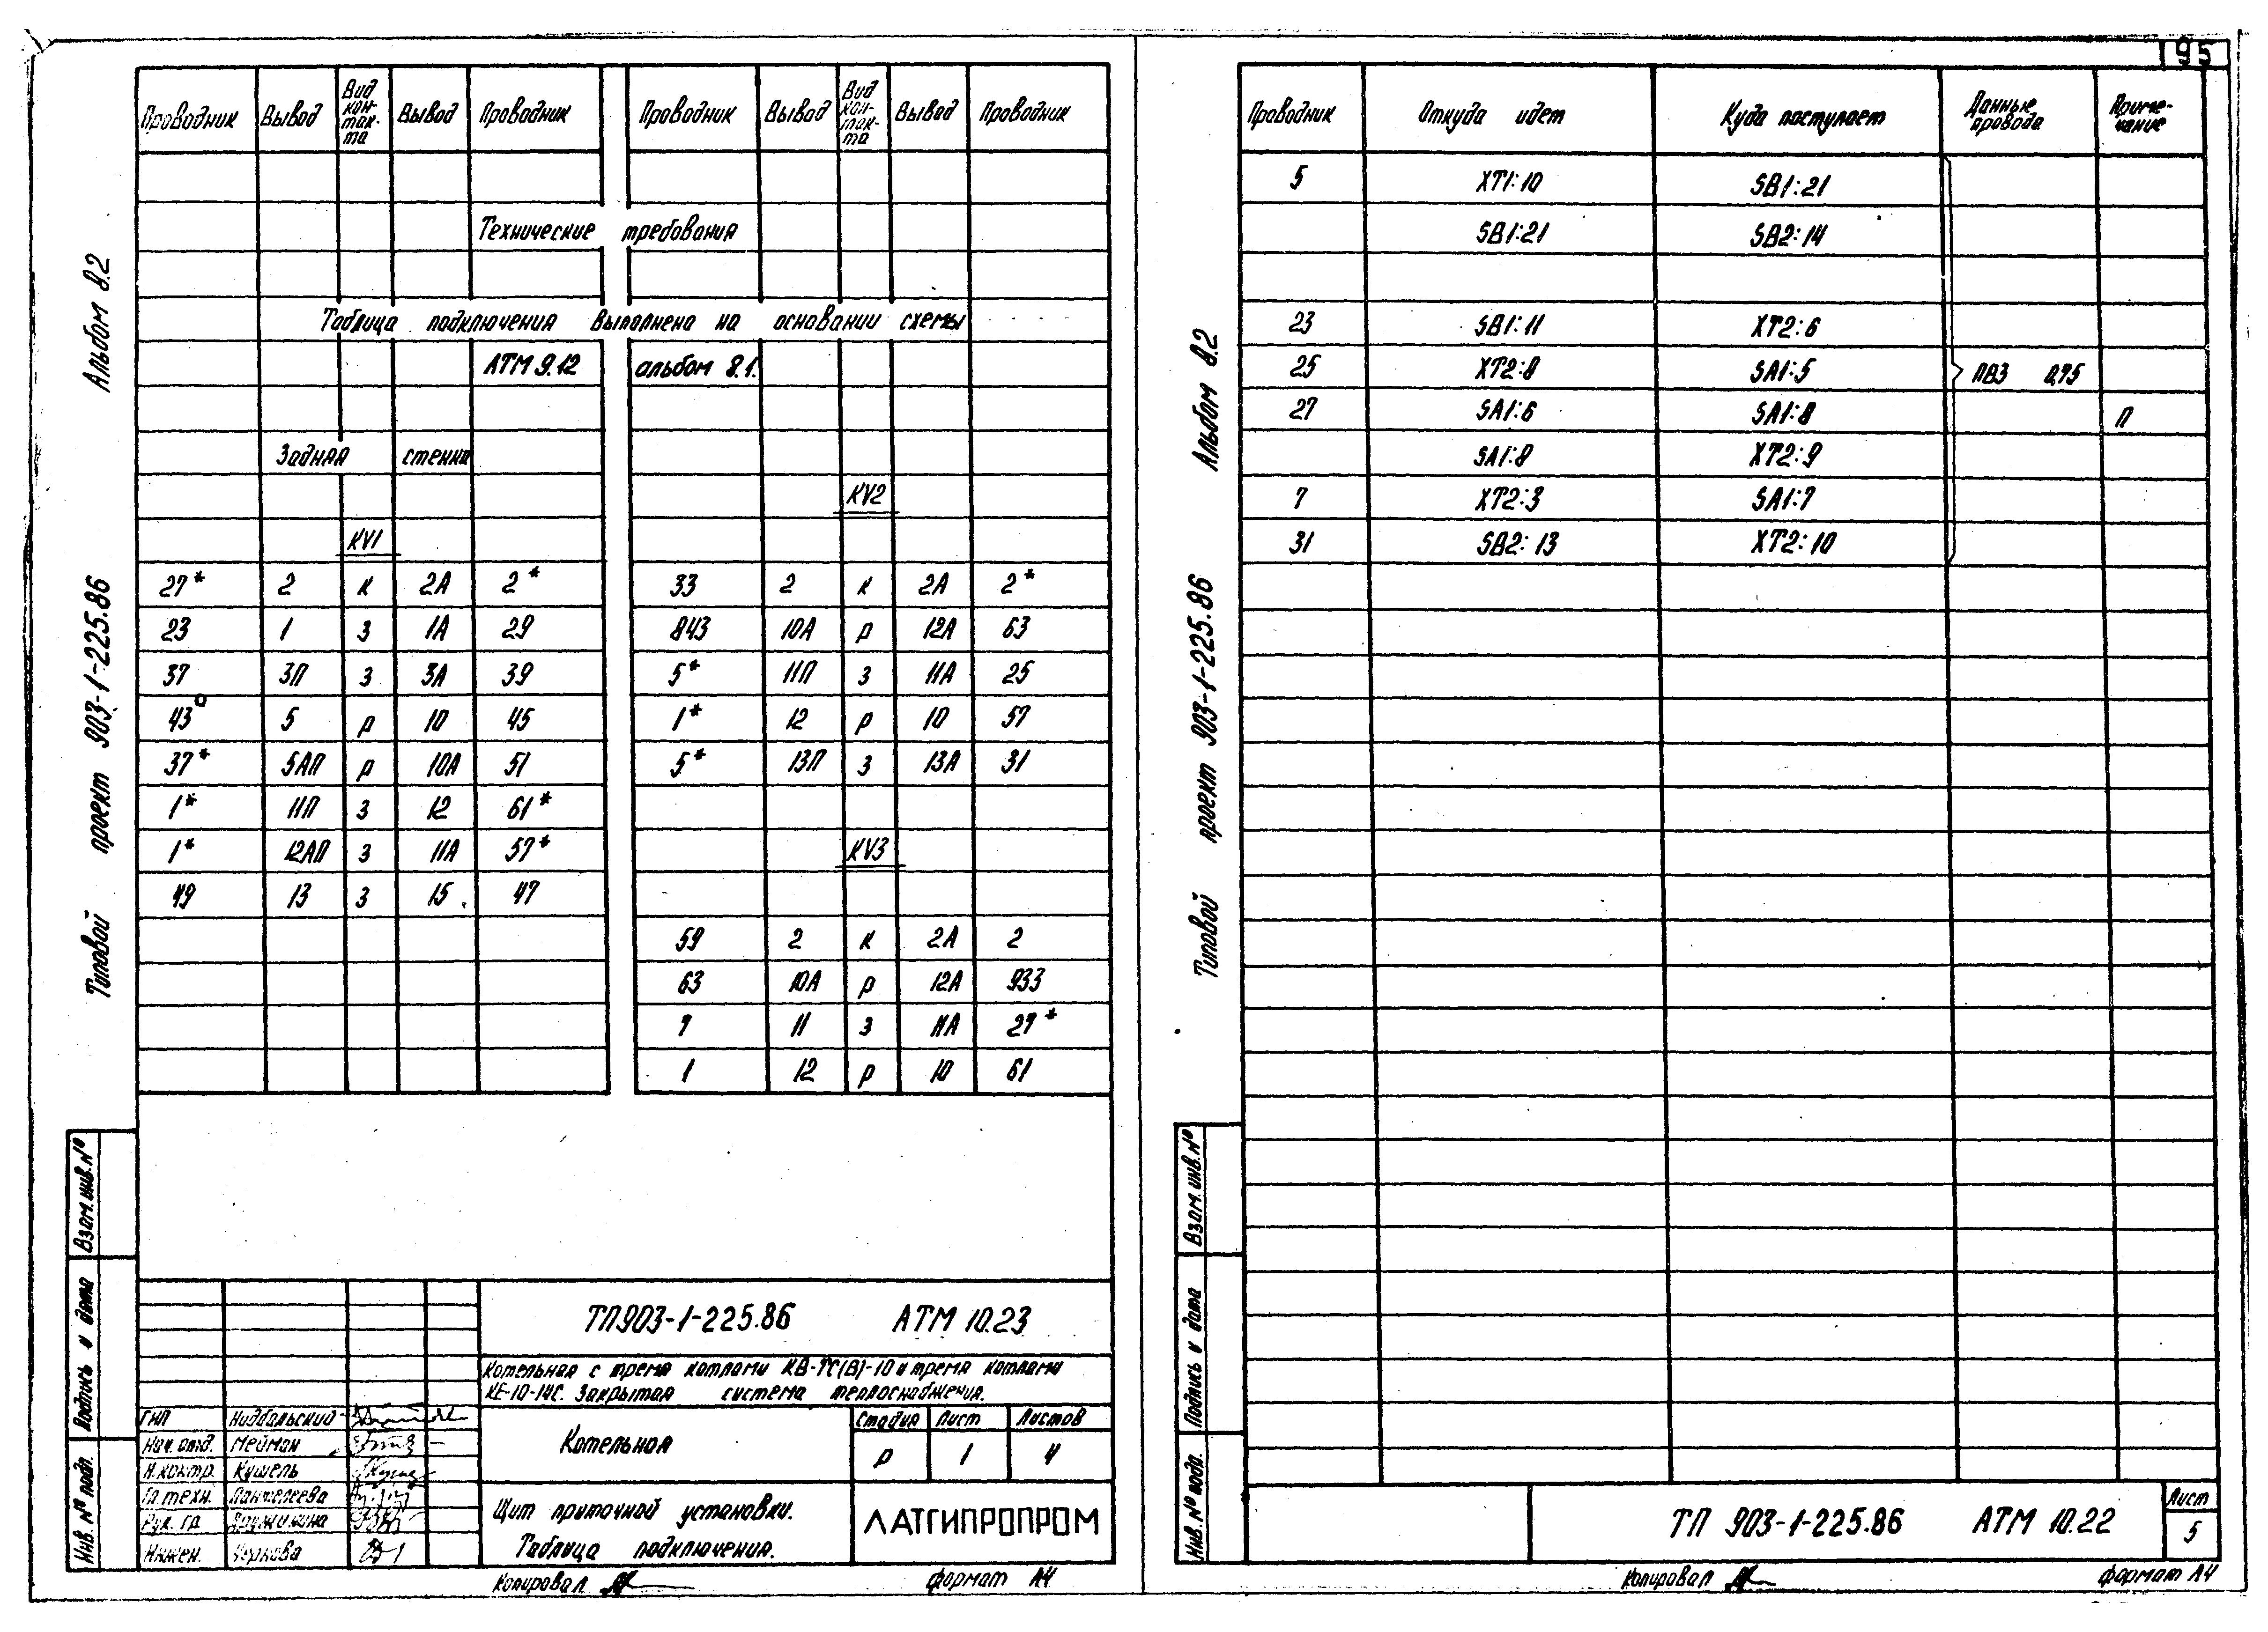 95
Альбом 8.2
Типовой проект 903-1-225.86
Проводник Вывод Вид кон-так-та Вывод Проводник Проводник Вывод Вид кон-так-та Вывод Проводник
Технические требования
Таблица подключения выполнена на основании схемы
АТМ 9.12 альбом 8.1.
Задняя стенка
KV2
KV1
27* 2 к 2А 2* 33 2 к 2А 2*
23 1 з 11А 29 843 10А р 12А 63
37 3П з 3А 39 5* 11П з 11А 25
43 5 р 10 45 1* 12 р 10 57
37* 5АП р 10А 51 5* 13П з 13А 31
1* 11П з 12 61*
1* 12АП з 11А 57* KV3
49 13 з 15 47
59 2 к 2А 2
63 10А р 12А 933
7 11 з 11А 27*
1 12 р 10 61
Взам. инв. №
Подпись и дата
Инв. № подл.
ТП903-1-225.86 АТМ 10.23
Котельная с тремя котлами КВ-ТС(В)-10 и тремя котлами
КЕ-10-14С. Закрытая система теплоснабжения.
ГИП Нидбальский
Нач. отд. Мейман
Н. контр. Кушель
Гл. техн. Пантелеева
Рук. гр. Дружинина
Инжен. Чернова
Котельная
Стадия Лист Листов
Р 1 4
Щит приточной установки.
Таблица подключения.
ЛАТГИПРОПРОМ
Копировал
формат А4
Альбом 8.2
Типовой проект 903-1-225.86
Проводник Откуда идет Куда поступает Данные провода Приме-чание
5 XT1:10 SB1:21
SB1:21 SB2:14
23 SB1:11 XT2:6
25 XT2:8 SA1:5 ПВ3 0,75
27 SA1:6 SA1:8 П
SA1:8 XT2:9
7 XT2:3 SA1:7
31 SB2:13 XT2:10
Взам. инв. №
Подпись и дата
Инв. № подл.
ТП 903-1-225.86 АТМ 10.22
Лист
5
Копировал
формат А4